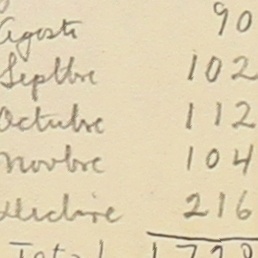 Agosto 90
Septbre 102
Octubre 112
Novbre 104
Dicibre 216
Total